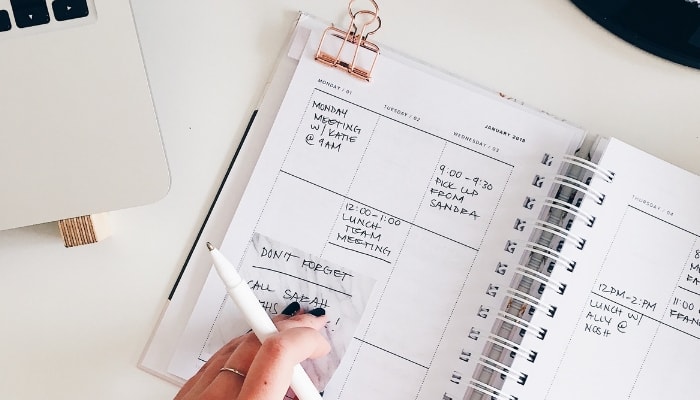 MONDAY / 01
TUESDAY / 02
JANUARY 2018
WEDNESDAY / 03
MONDAY
MEETING
W/ KATIE
@ 9AM
9:00-9:30
PICK UP
FROM
SANDRA
12:00-1:00
LUNCH
TEAM
MEETING
DON'T FORGET
CALL SARAH
!
THURSDAY / 04
12PM-2PM
LUNCH W/
ALLY @
NOSH
11:00